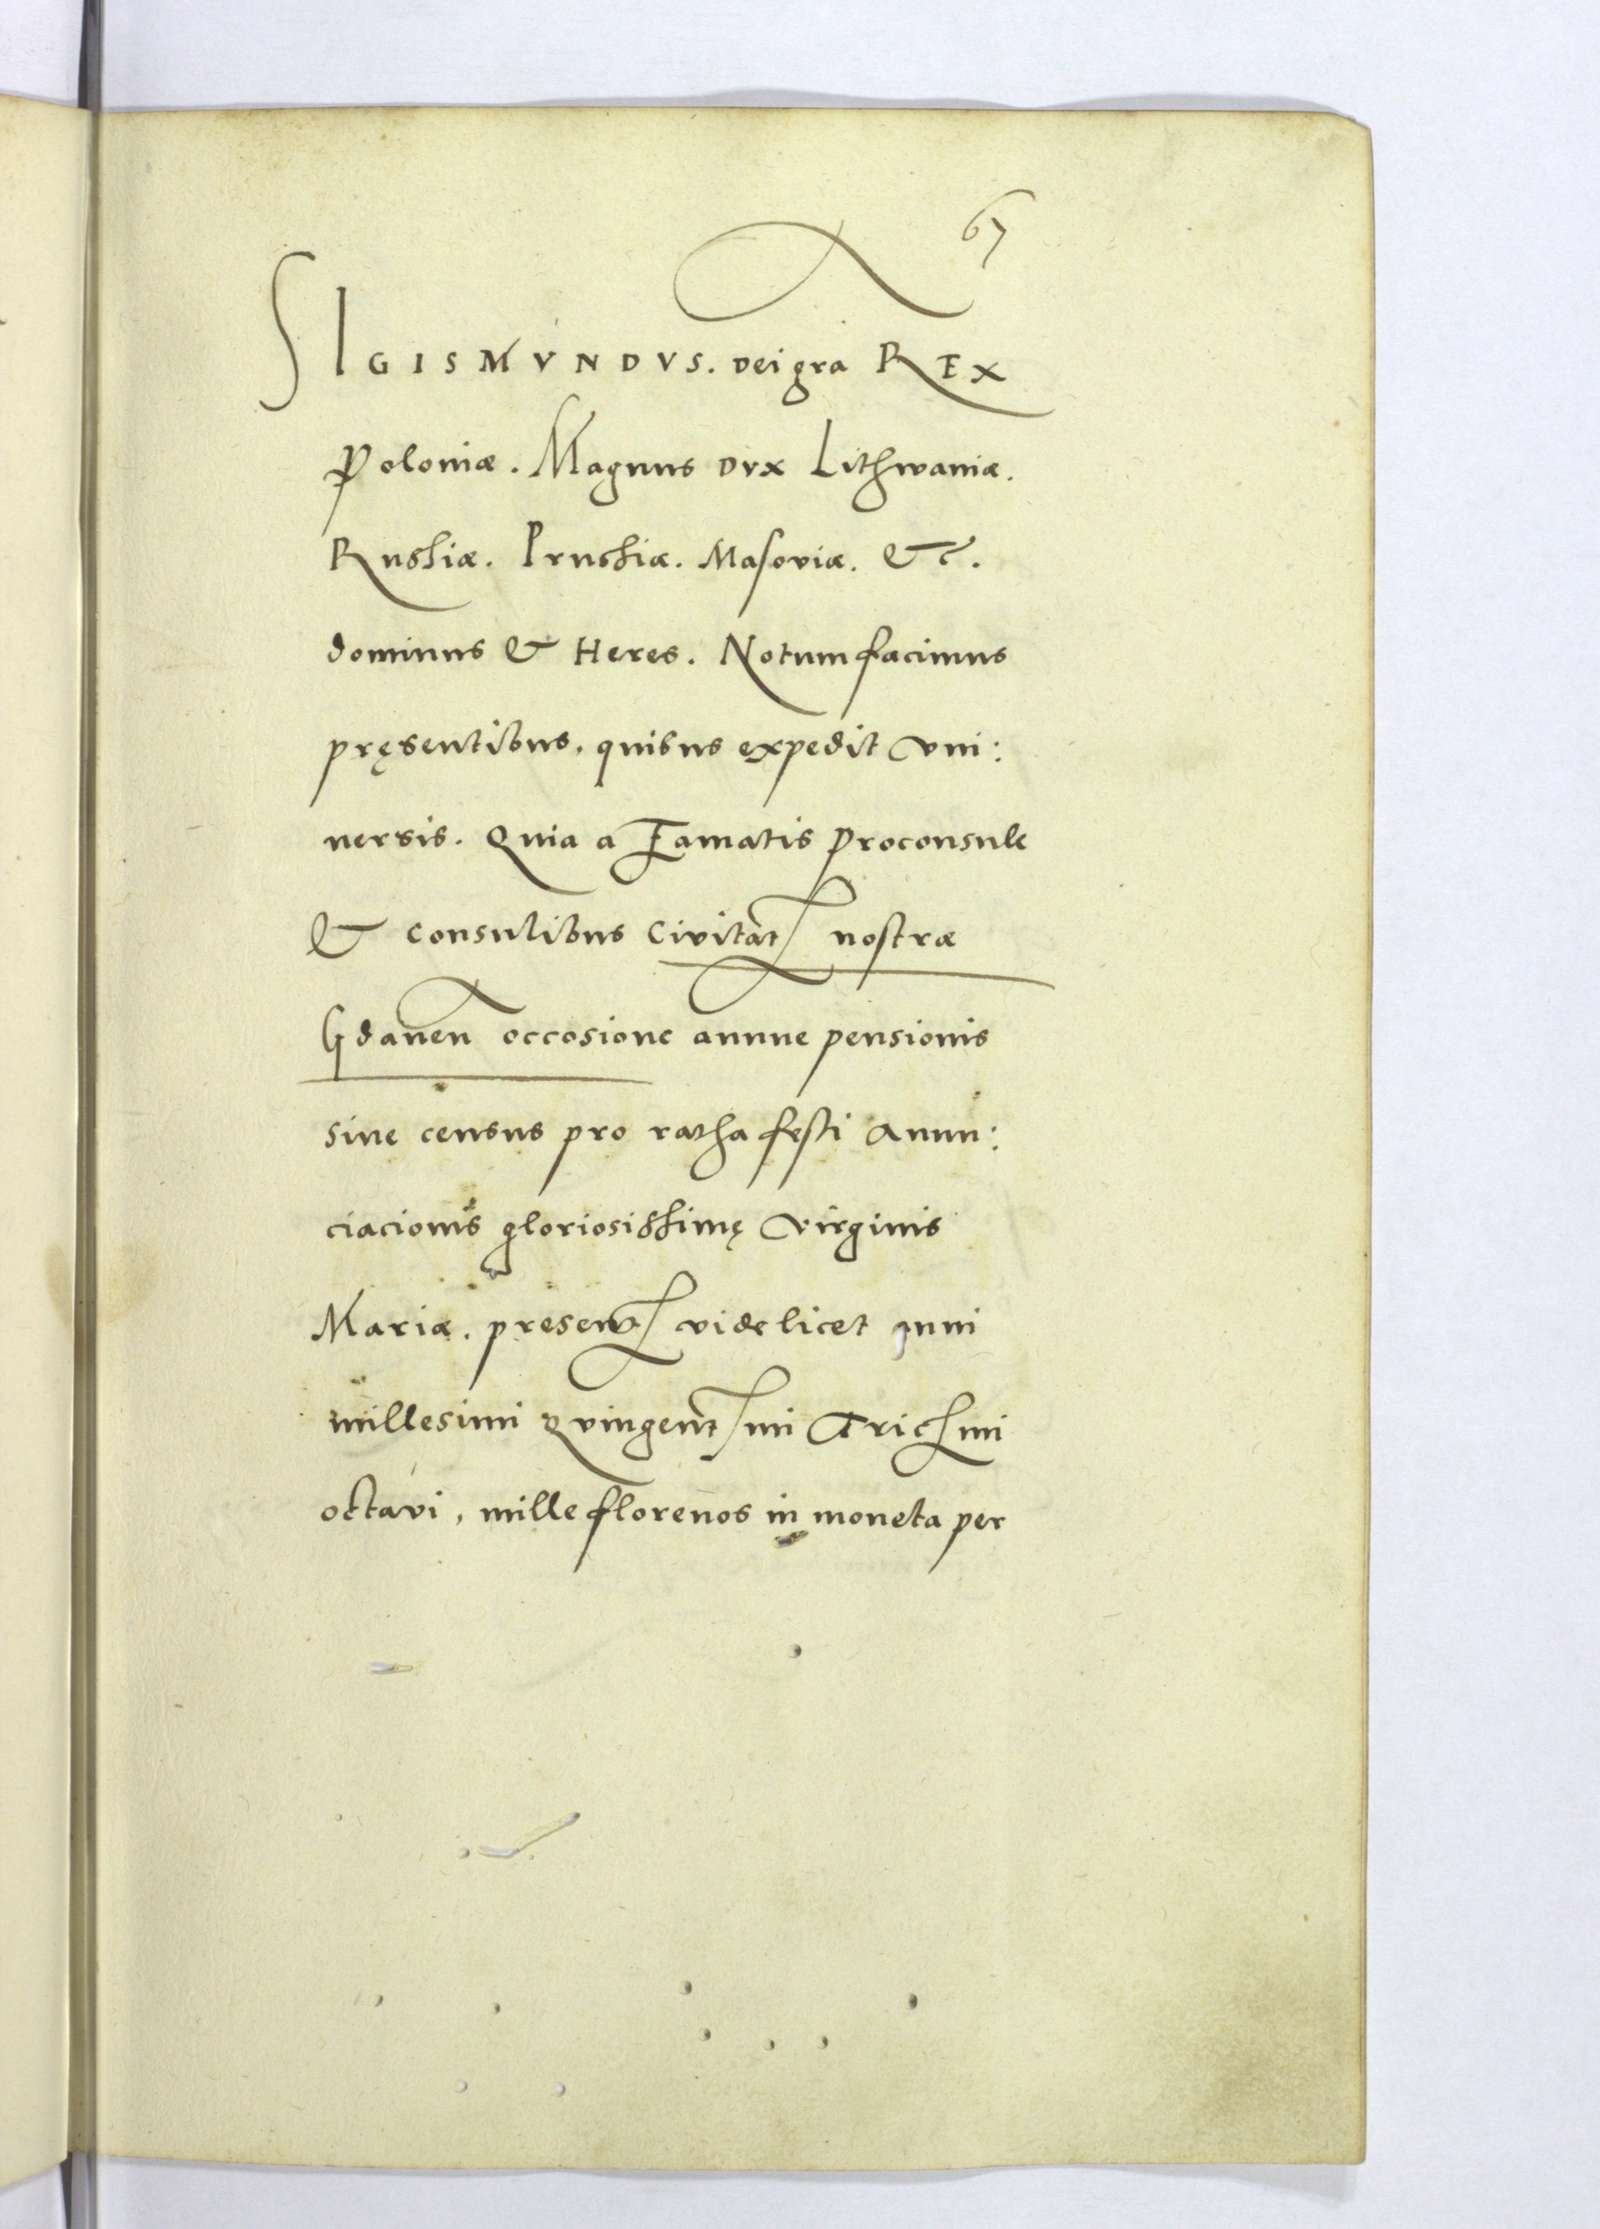 67
SIGISMVNDVS. Dei gra REX
Poloniæ. Magnus Dvx Lithwaniæ.
Russiæ. Prussiæ. Masoviæ. &c.
dominus & Heres. Notum facimus
pręsentibus, quibus expedit vni:
uersis. Quia a Famatis Proconsule
& consulibus Civitat nostræ
Gdanen occosione annue pensionis
siue census pro ratha festi Anun:
ciacionis gloriosissimę virginis
Mariæ. present videlicet anni
millesimi Qvingent mi Tric mi
octavi, mille florenos in moneta per